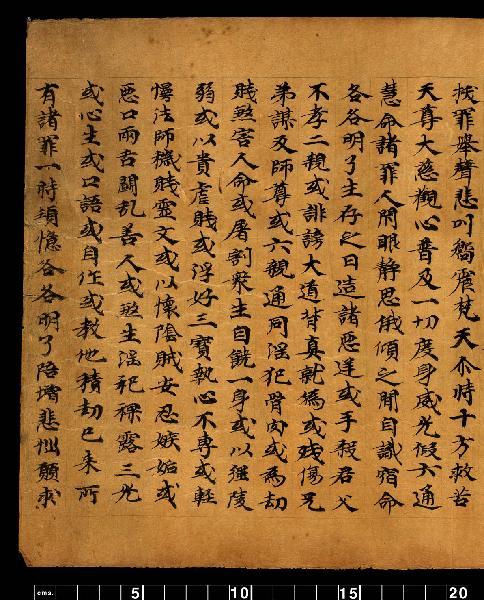 拔罪舉聲悲叫嚮震梵天尒時十方救苦
天尊大慈觀心普及一切度身威光假六通
慧命諸罪人開眼静思俄傾之間自識宿命
各各明了生存之日造諸惡逆或手殺君父
不孝二親或誹謗大道背真就偽或殘傷兄
弟謀及師尊或六親通同淫犯骨肉或為劫
賊煞害人命或屠割衆生自饒一身或以强陵
弱或以貴虐賤或浮好三寶執心不專或輕
慢法師穢賤靈文或以懷陰賊妄忍嫉妬或
惡口兩舌鬪乱善人或煞生淫祀裸露三光
或心生或口語或自作或教他積劫已来所
有諸罪一時頓憶各各明了陪增悲惱願求
cms. 5 10 15 20